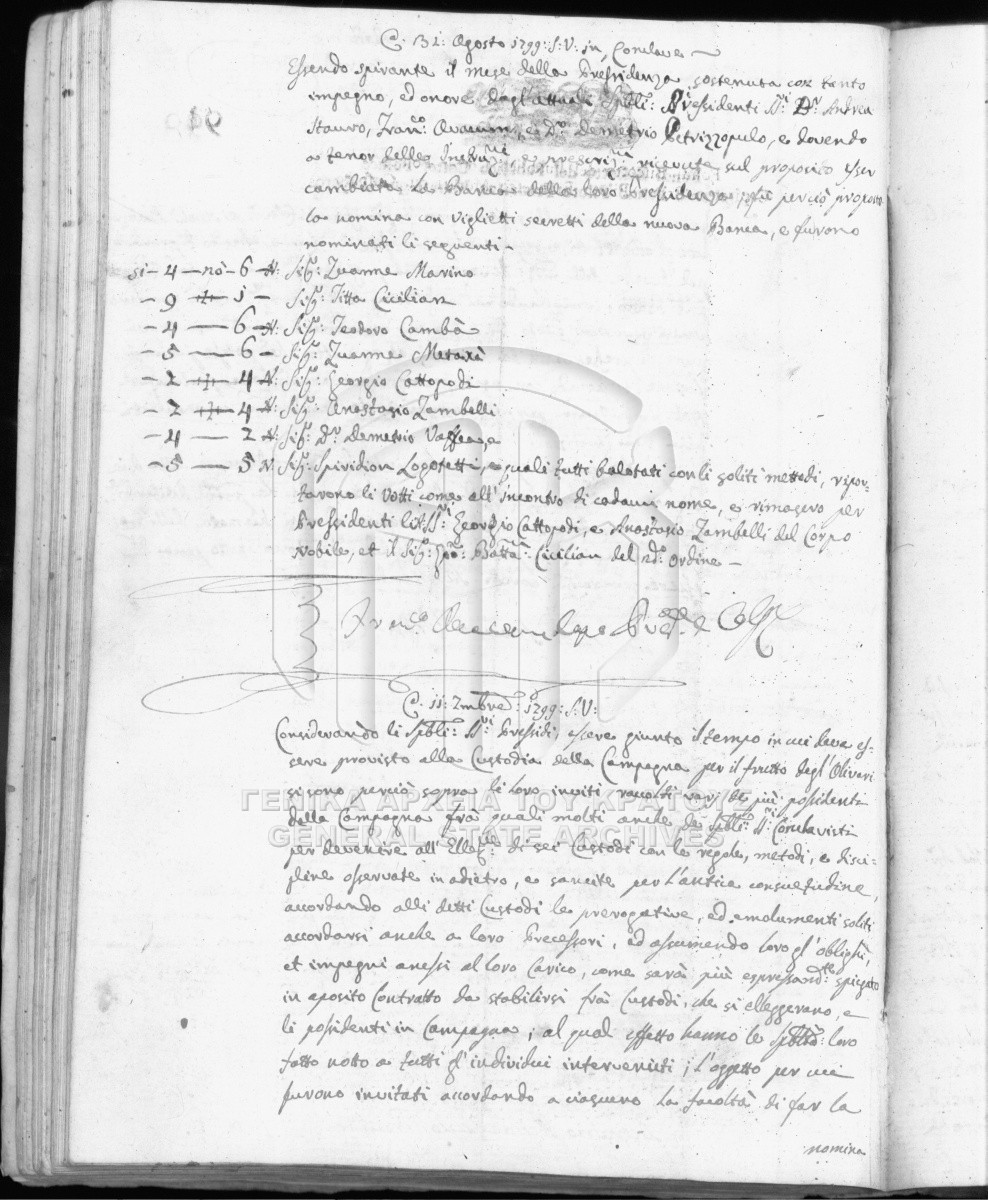 C. 31: Agosto 1799: S:V: in Conclave
Essendo spirante il mese della Pressidenza sostenuta con tanto
impegno, ed onore dagl'attuali Spbli: Pressidenti SS:ri D:r Andrea
Stauro, Fran:co, e D:r Demetrio Petrizzopulo, e dovendo
a tenor delle Instruz:ni, e prescriz:ni ricevute sul proposito esser
cambiata la Banca della loro Pressidenza, fù perciò proposta
la nomina con Viglietti secretti della nuova Banca, e furono
nominati li seguenti -
si - 4 - nò - 6 N: Sig: Zuanne Marino
- 9 1 - Sig: Titta Cicilian
- 4 — 6 N: Sig: Teodoro Cambà
- 5 — 6 - Sig: Zuanne Metaxà
- 2 4 N: Sig: Georgio Cattopodi
- 2 4 N: Sig: Anastasio Zambelli
- 4 — 2 N: Sig: D:r Demetrio
- 5 — 5 N: Sig: Spiridion Logotetti, e quali tutti balotati con li soliti mettodi, ripor-
tarono li Votti come all'incontro di cadaun nome, e rimasero per
Pressidenti li SS:ri Georgio Cattopodi, e Anastasio Zambelli del Corpo
Nobile, et il Sig: Batta: Cicilian del 2do: Ordine -
C. 11: 7mbre: 1799: S:V:
Considerando li Spbli: SS:ri Pressidi, essere giunto il tempo in cui deva es-
sere provisto alla Custodia della Campagna per il frutto degl'Olivari
si sono perciò sopra li loro inviti racolti varj de più possidenti
della Campagna frà quali molti anche de Spbli: SS:ri Conclavisti
per devenire all'Ellez:ne di sei Custodi con le regole, metodi, e disci-
pline osservate in adietro, e sancite per l'antica consuetudine,
accordando alli detti Custodi le prerogative, ed emolumenti soliti
accordarsi anche a loro Precessori, ed assumendo loro gl'oblighi,
et impegni anessi al loro Carico, come sarà più espressam:te spiegato
in aposito Contratto da stabilirsi frà Custodi, che si ellegerano, e
li possidenti in Campagna; al qual effetto hanno le Spbltà: loro
fatto notto a tutti gl'individui intervenuti; l'oggetto per cui
furono invitati accordando a ciascuno la facoltà di far la
nomina
ΓΕΝΙΚΑ ΑΡΧΕΙΑ ΤΟΥ ΚΡΑΤΟΥΣ
GENERAL STATE ARCHIVES